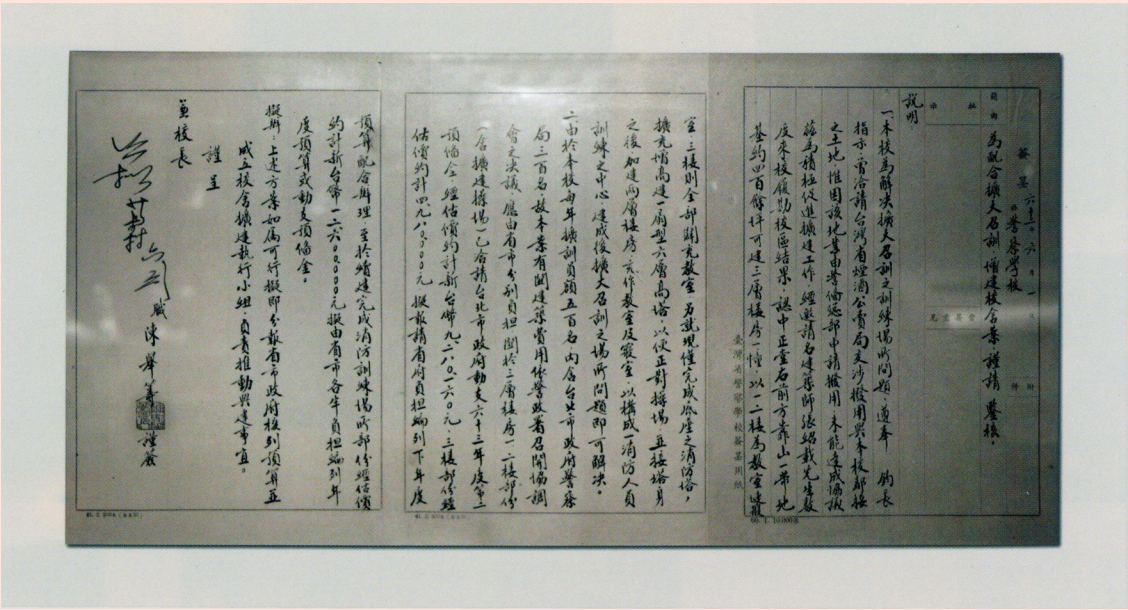 簽呈 六十二、六、一
於警察學校
簡由 為配合擴大召訓增建校舍案謹請 鑒核。
附件
批示
說明：
一、本校為解決擴大召訓之訓練場所問題，遵奉 鈞長
指示，嘗洽請台灣省菸酒公賣局交涉撥用與本校鄰接
之土地，惟因該地業由警備總部申請撥用，未能達成協議
茲為積極促進擴建工作，經邀請名建築師張紹載先生數
度來校復勘校區結果，認中正堂右前方靠山一帶，地
基約四百餘坪可建三層樓房一幢，以一二樓為教室連寢
室三樓則全部闢充教室，另就現僅完成底座之消防塔，
擴充增高建一扇型六層高塔，以便正對操場，並接塔身
之後加建兩層樓房，充作教室及寢室，以構成一消防人員
訓練之中心，建成後擴大召訓之場所問題即可解決。
二、由於本校每年擴訓員額五百名內含台北市政府警察
局二百名，故本案有關建築費用，依警政署召開協調
會之決議，應由省市分別負担，關於三層樓房一二樓部份
（含擴建操場）已含請台北市政府動支六十三年度第二
預備金，經估價約計新台幣九二八〇一六〇元，三樓部份經
估價約計四九八〇〇〇〇元，擬報請省府負担編列下年度
預算配合辦理，至於續建完成消防訓練場所部份經估價
約計新台幣一二六〇〇〇〇〇元擬由省市各半負担編列年
度預算或動支預備金。
擬辦：上述方案如屬可行擬即分報省市政府核列預算並
成立校舍擴建執行小組，負責推動興建事宜。
謹呈
兼校長
職 陳 謹簽
臺灣省警察學校簽呈用紙